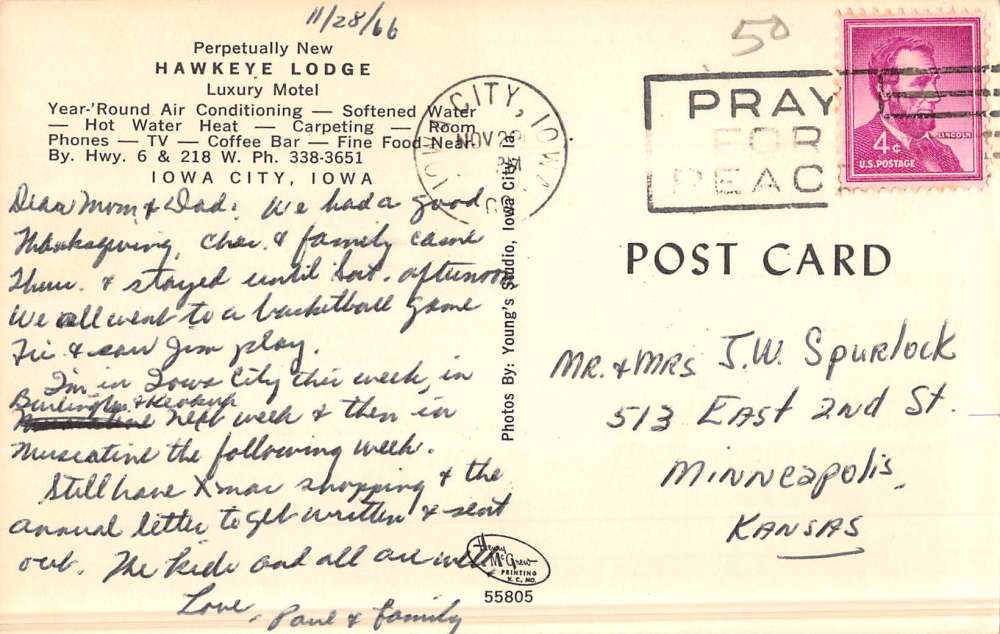 11/28/66
Perpetually New
HAWKEYE LODGE
Luxury Motel
Year-'Round Air Conditioning — Softened Water
— Hot Water Heat — Carpeting — Room
Phones — TV — Coffee Bar — Fine Food Near-
By. Hwy. 6 & 218 W. Ph. 338-3651
IOWA CITY, IOWA
Dear Mom & Dad: We had a good
Thanksgiving, Char. & family came
Thur. & stayed until Sat. afternoon
We all went to a basketball game
Fri & saw Jim play.
I'm in Iowa City this week, in
Burlington & Keokuk
next week & then in
Muscatine the following week.
Still have Xmas shopping & the
annual letter to get written & sent
out. The kids and all are well.
Love,
Paul & family
Photos By: Young's Studio, Iowa City, Ia.
Henry McGrew
PRINTING
K. C. MO.
55805
50
IOWA CITY, IOWA
NOV 28
PM
PRAY
FOR
PEAC
LINCOLN
4¢
U.S. POSTAGE
POST CARD
MR. & MRS J.W. Spurlock
513 EAST 2nd St.
Minneapolis,
KANSAS